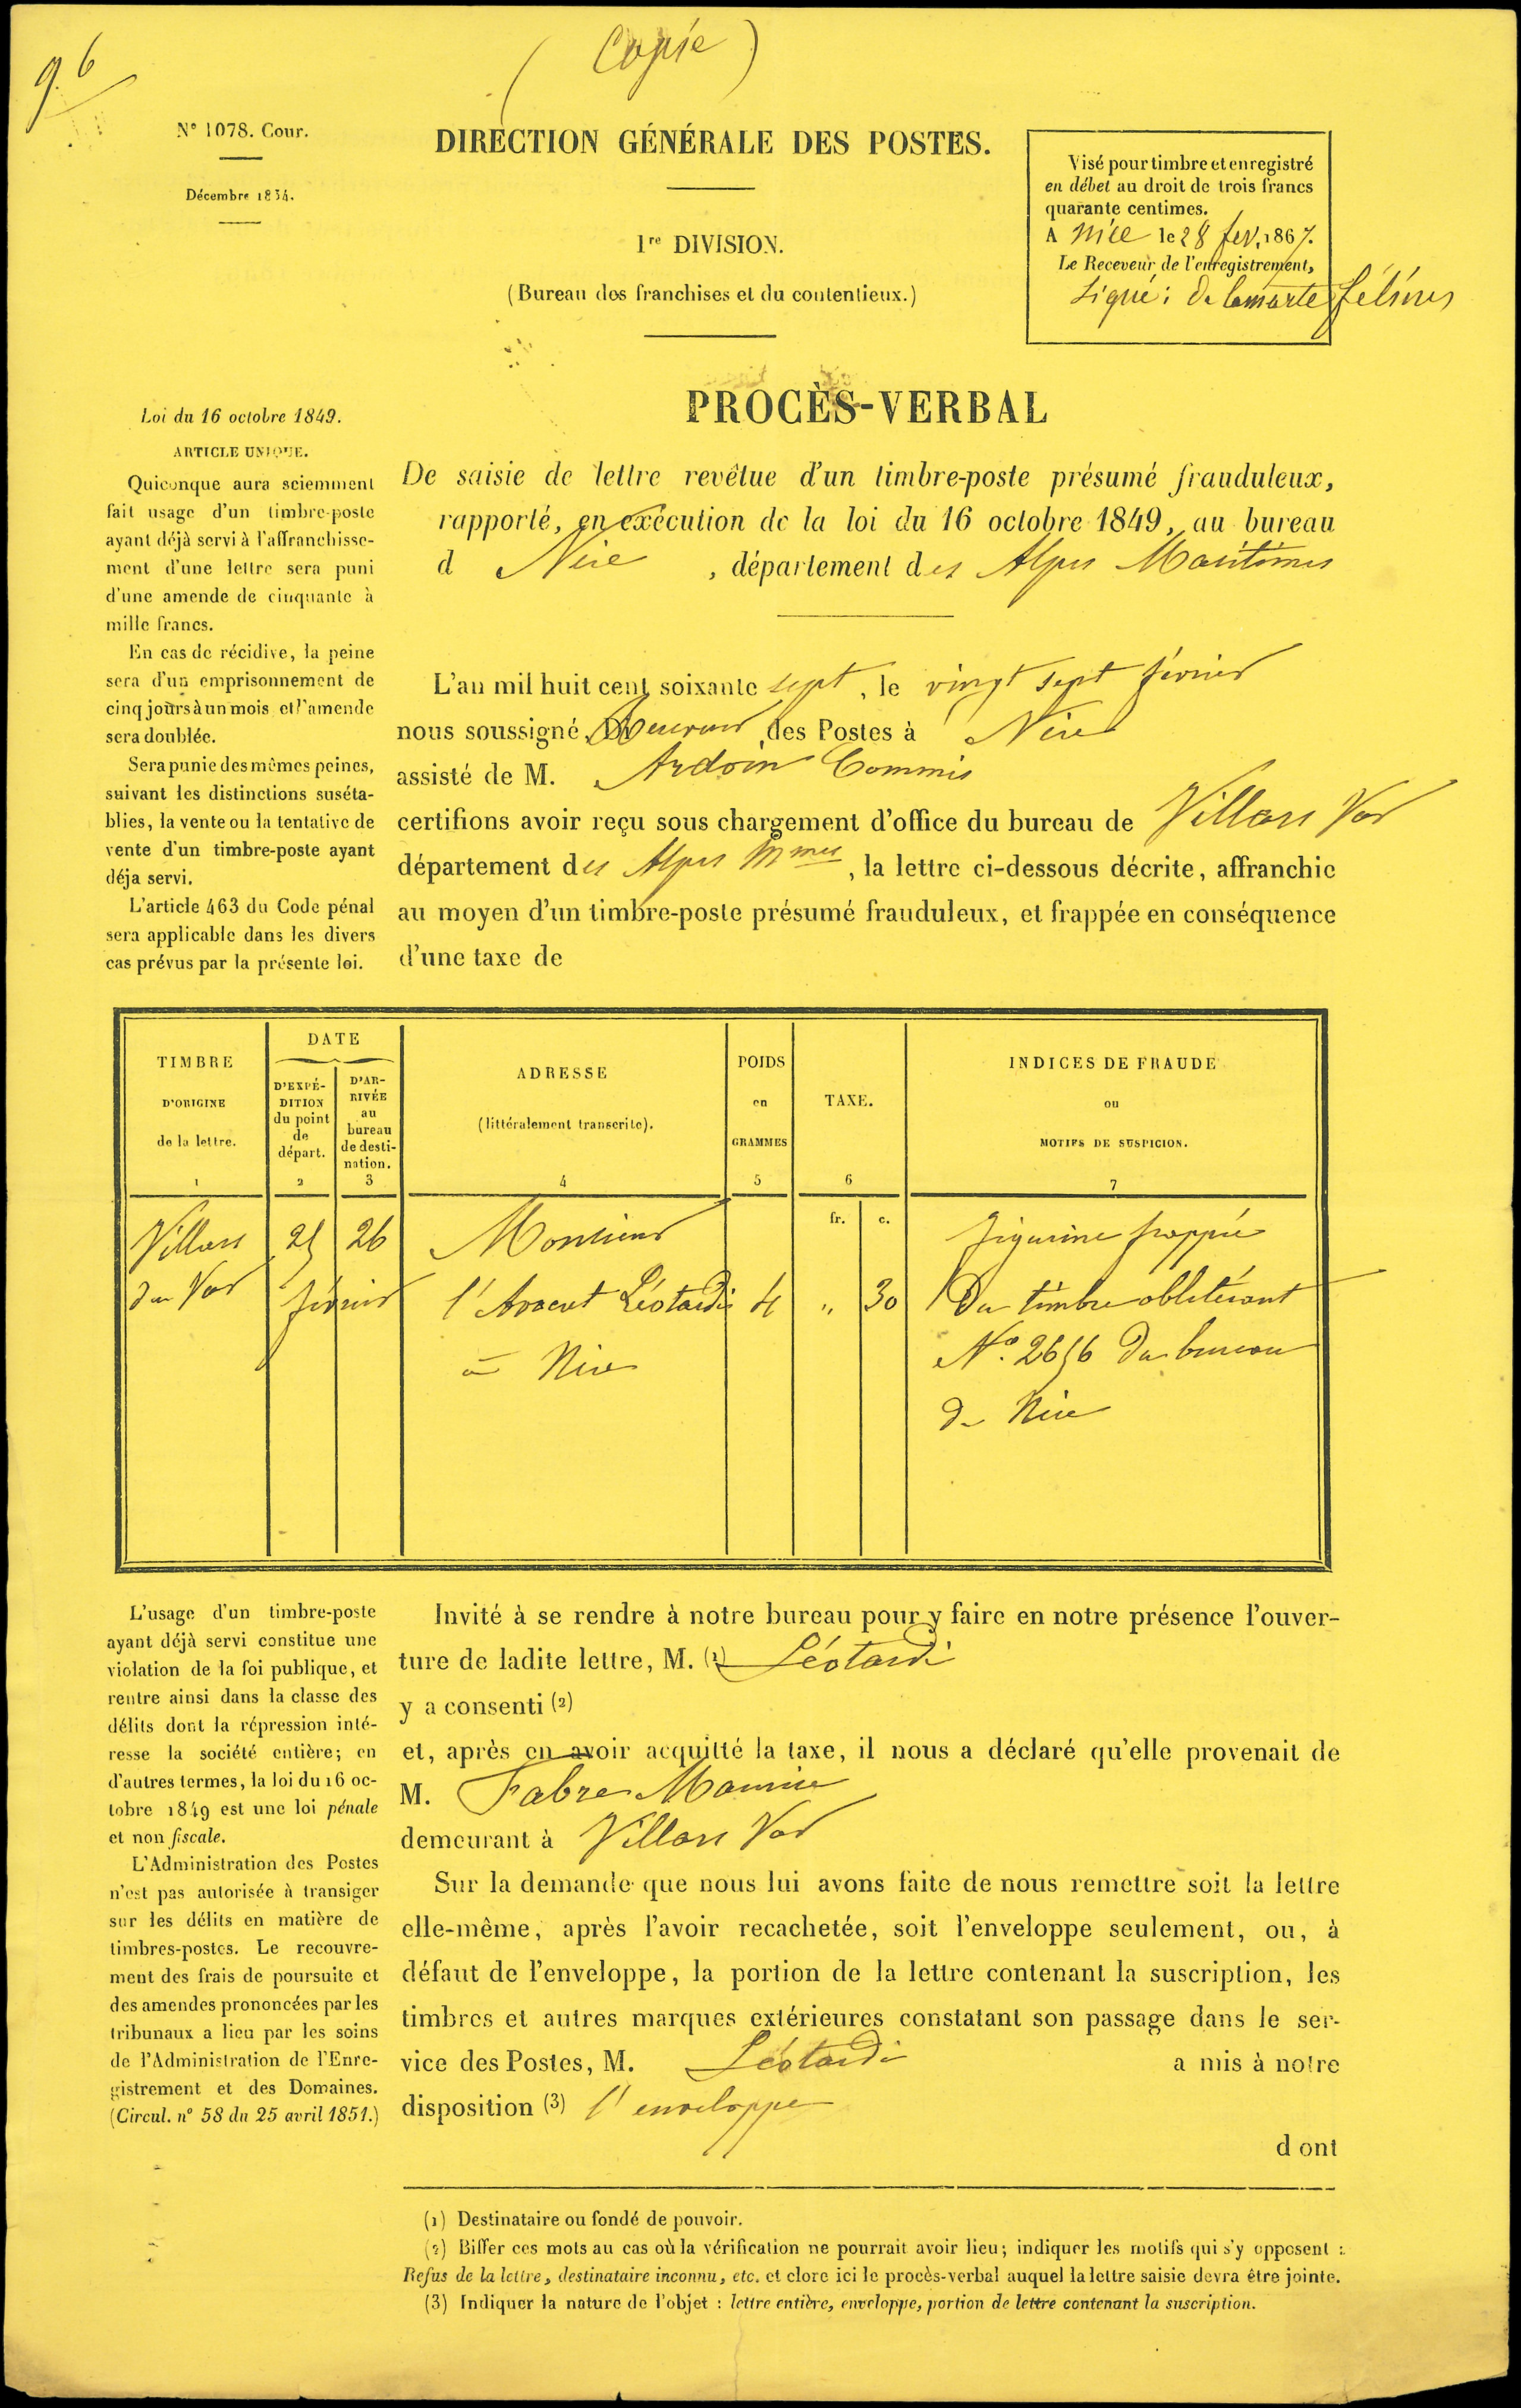 9.6
( Copie )
N° 1078. Cour.
Décembre 1854.
DIRECTION GÉNÉRALE DES POSTES.
1re DIVISION.
(Bureau des franchises et du contentieux.)
Visé pour timbre et enregistré
en débet au droit de trois francs
quarante centimes.
A Nice le 28 fev. 1867.
Le Receveur de l'enregistrement,
Signé :
Loi du 16 octobre 1849.
ARTICLE UNIQUE.
Quiconque aura sciemment
fait usage d'un timbre-poste
ayant déjà servi à l'affranchisse-
ment d'une lettre sera puni
d'une amende de cinquante à
mille francs.
En cas de récidive, la peine
sera d'un emprisonnement de
cinq jours à un mois et l'amende
sera doublée.
Sera punie des mêmes peines,
suivant les distinctions suséta-
blies, la vente ou la tentative de
vente d'un timbre-poste ayant
déja servi.
L'article 463 du Code pénal
sera applicable dans les divers
cas prévus par la présente loi.
PROCÈS-VERBAL
De saisie de lettre revêtue d'un timbre-poste présumé frauduleux,
rapporté, en exécution de la loi du 16 octobre 1849, au bureau
d Nice , département des Alpes Maritimes
L'an mil huit cent soixante sept, le vingt sept février
nous soussigné, Receveur des Postes à Nice
assisté de M. Ardoin Commis
certifions avoir reçu sous chargement d'office du bureau de Villars Var
département des Alpes Mmes, la lettre ci-dessous décrite, affranchie
au moyen d'un timbre-poste présumé frauduleux, et frappée en conséquence
d'une taxe de
TIMBRE
D'ORIGINE
de la lettre.
1
DATE
D'EXPÉ-
DITION
du point
de
départ.
2
D'AR-
RIVÉE
au
bureau
de desti-
nation.
3
ADRESSE
(littéralement transcrite).
4
POIDS
en
GRAMMES
5
TAXE.
6
INDICES DE FRAUDE
ou
MOTIFS DE SUSPICION.
7
fr. c.
Villars 25 26 Monsieur figurine frappée
du Var février l'Avocat Léotardi 4 " 30 Du timbre oblitérant
à Nice N° 2656 du bureau
de Nice
L'usage d'un timbre-poste
ayant déjà servi constitue une
violation de la foi publique, et
rentre ainsi dans la classe des
délits dont la répression inté-
resse la société entière; en
d'autres termes, la loi du 16 oc-
tobre 1849 est une loi pénale
et non fiscale.
L'Administration des Postes
n'est pas autorisée à transiger
sur les délits en matière de
timbres-postes. Le recouvre-
ment des frais de poursuite et
des amendes prononcées par les
tribunaux a lieu par les soins
de l'Administration de l'Enre-
gistrement et des Domaines.
(Circul. n° 58 du 25 avril 1851.)
Invité à se rendre à notre bureau pour y faire en notre présence l'ouver-
ture de ladite lettre, M. (1) Léotardi
y a consenti (2)
et, après en avoir acquitté la taxe, il nous a déclaré qu'elle provenait de
M. Fabre Maurice
demeurant à Villars Var
Sur la demande que nous lui avons faite de nous remettre soit la lettre
elle-même, après l'avoir recachetée, soit l'enveloppe seulement, ou, à
défaut de l'enveloppe, la portion de la lettre contenant la suscription, les
timbres et autres marques extérieures constatant son passage dans le ser-
vice des Postes, M. Léotardi a mis à notre
disposition (3) l'enveloppe
dont
(1) Destinataire ou fondé de pouvoir.
(2) Biffer ces mots au cas où la vérification ne pourrait avoir lieu; indiquer les motifs qui s'y opposent :
Refus de la lettre, destinataire inconnu, etc. et clore ici le procès-verbal auquel la lettre saisie devra être jointe.
(3) Indiquer la nature de l'objet : lettre entière, enveloppe, portion de lettre contenant la suscription.